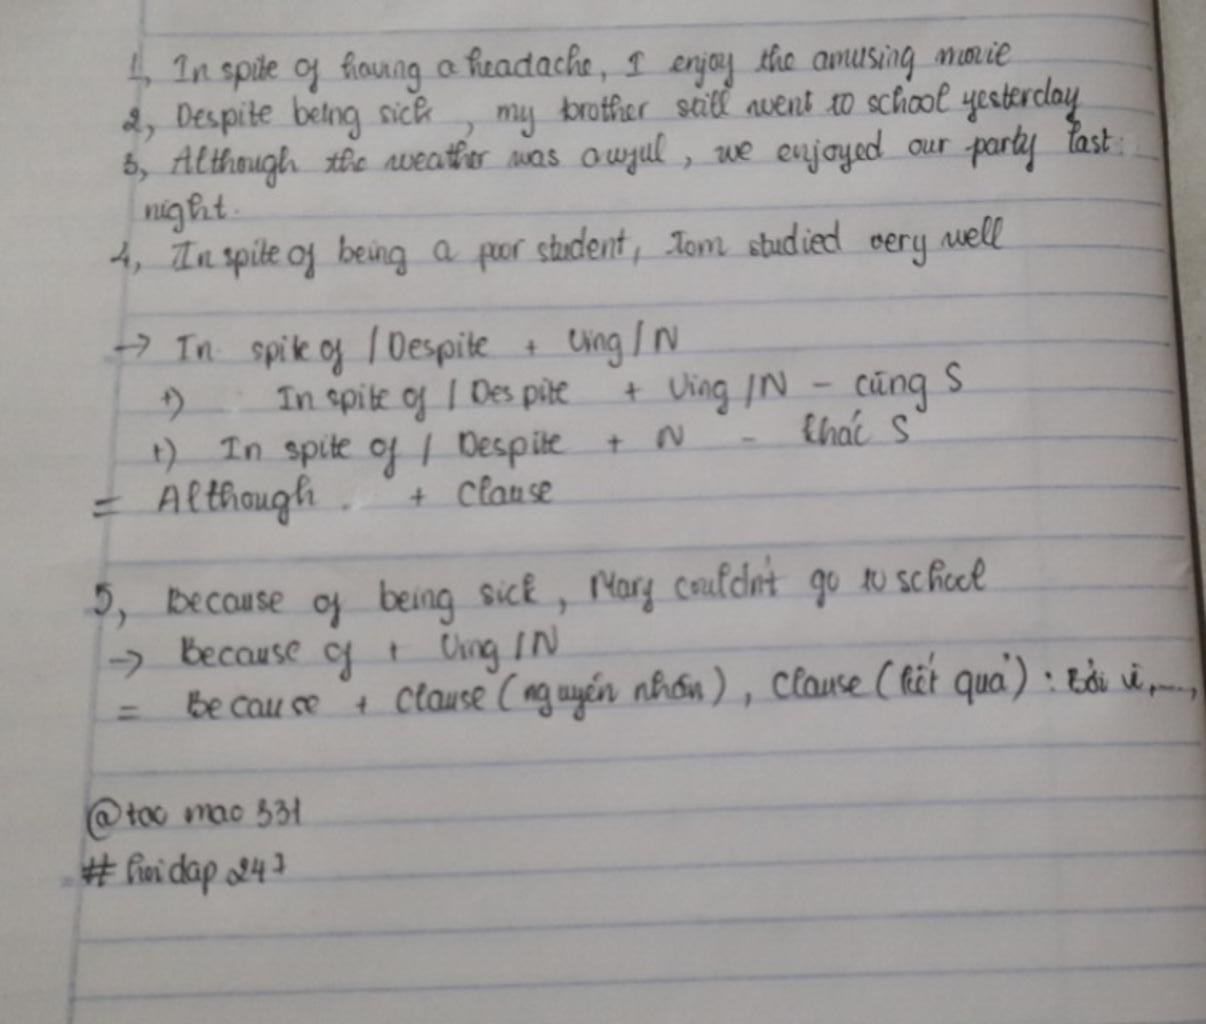 1, In spite of having a headache, I enjoy the amusing movie
2, Despite being sick, my brother still went to school yesterday
3, Although the weather was awful, we enjoyed our party last
night.
4, In spite of being a poor student, Tom studied very well
→ In spite of / Despite + Ving / N
+) In spite of / Despite + Ving / N - cùng S
+) In spite of / Despite + N - khác S
= Although + Clause
5, Because of being sick, Mary couldn't go to school
→ Because of + Ving / N
= Because + Clause (nguyên nhân), Clause (kết quả) : Bởi vì,...,
@tao mao 331
# hoidap 247